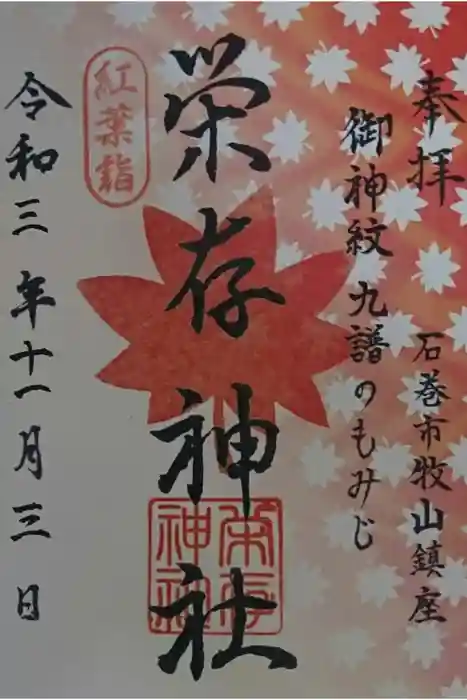 奉拝
石巻市牧山鎮座
御神紋九譜のもみじ
栄存神社
紅葉詣
栄存神社
令和三年十一月三日